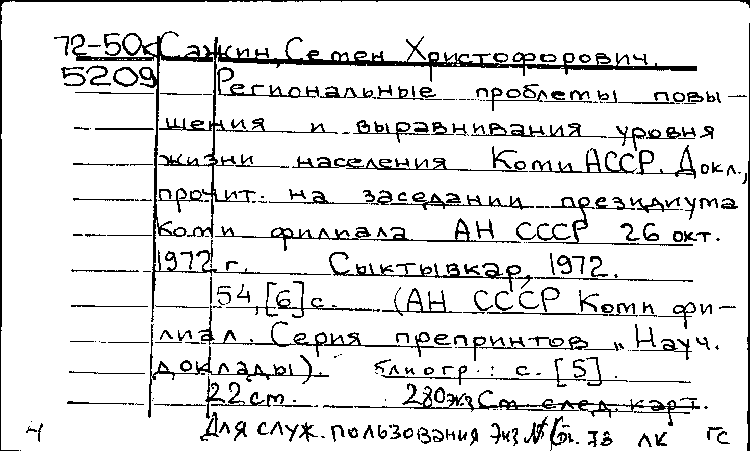 72-50к Сажин, Семен Христофорович.
5209 Региональные проблемы повы-
шения и выравнивания уровня
жизни населения Коми АССР. Докл.,
прочит. на заседании президиума
Коми филиала АН СССР 26 окт.
1972 г. Сыктывкар, 1972.
54, [6] с. (АН СССР Коми фи-
лиал. Серия препринтов „Науч.
доклады). блиогр.: с. [5].
22 см. 280 экз См. след. карт.
Для служ. пользования Экз № лк гс